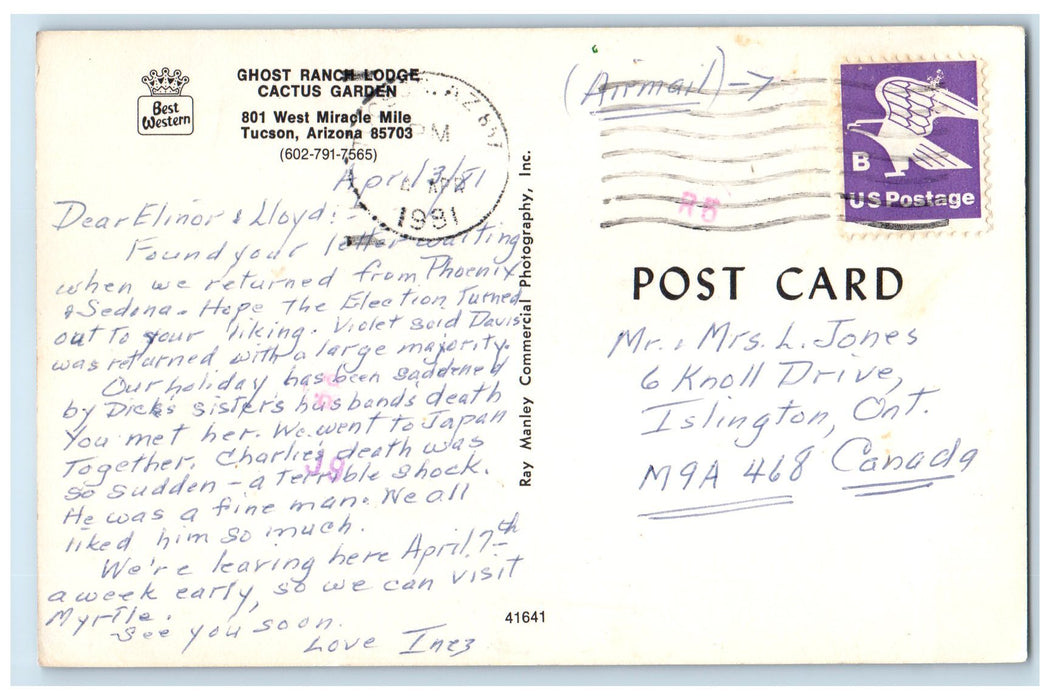 Best
Western
GHOST RANCH LODGE
CACTUS GARDEN
801 West Miracle Mile
Tucson, Arizona 85703
(602-791-7565)
April 3/81
Dear Elinor & Lloyd: -
Found your letter waiting
when we returned from Phoenix
& Sedona. Hope The Election Turned
out To your liking. Violet said Davis
was returned with a large majority.
Our holiday has been saddened
by Dick's sister's husbands death
You met her. We went to Japan
Together. Charlies death was
so sudden - a terrible shock.
He was a fine man. We all
liked him so much.
We're leaving here April 7th
a week early, so we can visit
Myrtle.
See you soon.
Love Inez
Ray Manley Commercial Photography, Inc.
41641
PM
APR
1981
(Airmail) →
R5
B
US Postage
POST CARD
Mr. & Mrs. L. Jones
6 Knoll Drive,
Islington, Ont.
M9A 4G8 Canada